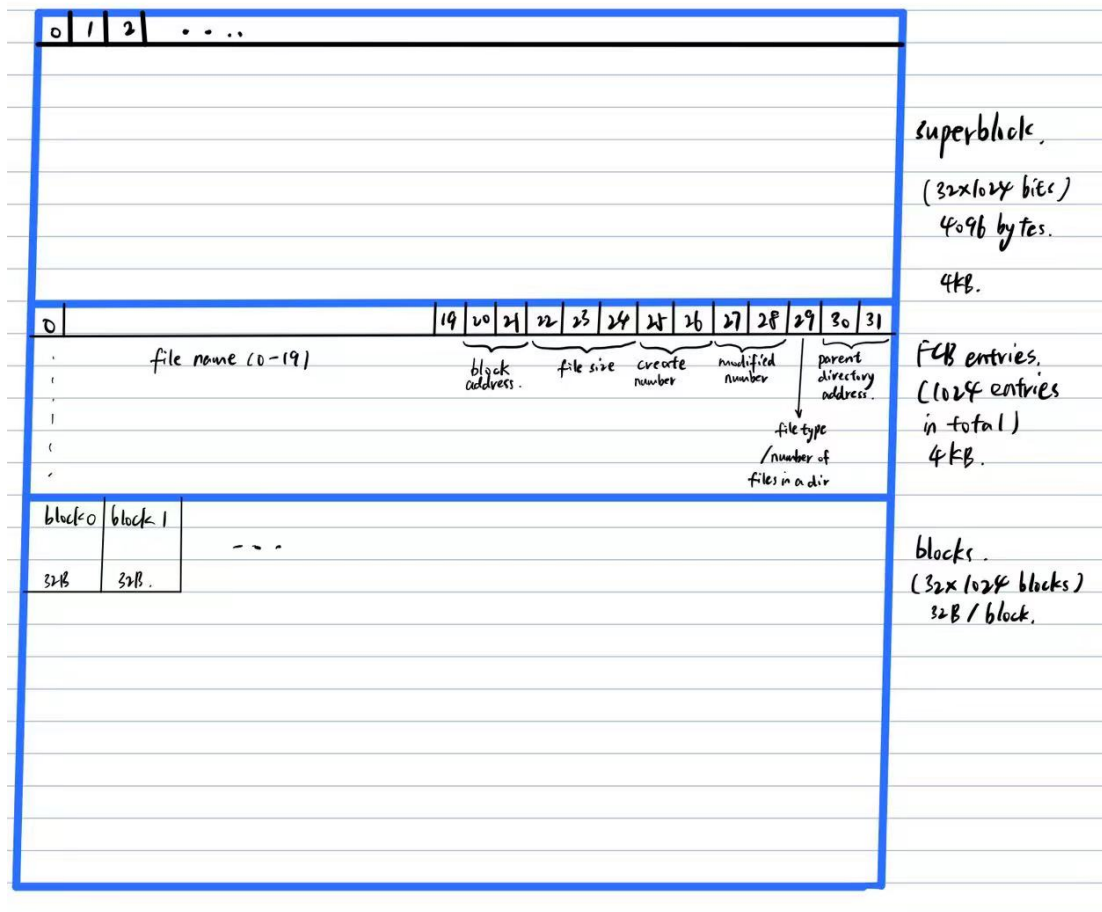 0 1 2 . . . .
superblock.
(32×1024 bits)
4096 bytes.
4kB.
0 19 20 21 22 23 24 25 26 27 28 29 30 31
file name (0-19)
block address.
file size
create number
modified number
parent directory address.
file type
/number of
files in a dir
FCB entries.
(1024 entries
in total)
4kB.
block 0 block 1
- - -
32B 32B.
blocks.
(32×1024 blocks)
32B / block.